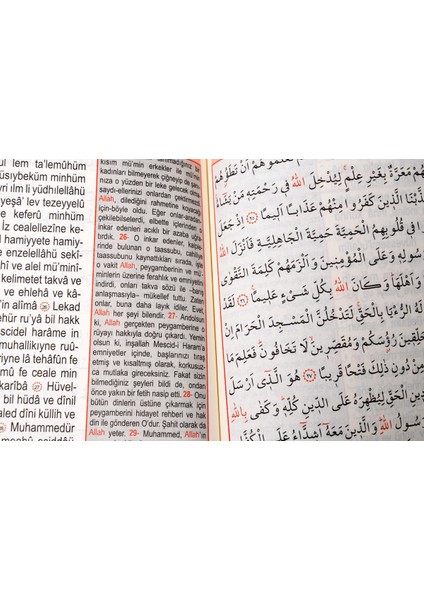 ul lem ta'lemûhüm
usıybeküm minhüm
yri ılm li yüdhılellâhü
yeşâ' lev tezeyyelû
e keferû minhüm
z cealellezîne ke-
hamiyyete hamiy-
enzelellâhü sekî-
ve alel mü'minî-
kelimetet takvâ ve
ve ehlehâ ve kâ-
in alîmâ Lekad
hür ru'yâ bil hakk
scidel harâme in
muhallikıyne ruû-
ıyne lâ tehâfûn fe
fe ceale min
karîbâ Hüvel-
bil hüdâ ve dînil
aled dîni küllih ve
Muhammedür
kısım mü'min erkekler ile mü'min
kadınları bilmeyerek çiğneyip de
nıza o yüzden bir leke gelecek olma-
saydı-ellerinizi onlardan
Allah, dilediğini rahmetine koyacağı
için-böyle oldu. Eğer onlar-arada-
ki mü'minler çekilip gitselerdi onlardan
inkar edenleri acıklı bir azaba uğra-
tırdık. 26- O inkar edenler, kalple-
rinde bulunan o taassubu, cahiliye
taassubunu kaynattıkları sırada, işte
o vakit Allah, peygamberinin ve mü'-
minlerin üzerine ferahlık ve emniyet
indirdi, onları takva sözü ile –barış
anlaşmasıyla– mükellef tuttu. Zaten
onlar, buna daha layık idiler. Evet,
Allah her şeyi bilendir. 27- Andolsun
ki, Allah gerçekten peygamberine o
rüyayı hakkıyla doğru çıkardı. Yemin
olsun ki, inşallah Mescid-i Haram'a
emniyetler içinde, başlarınızı tıraş
etmiş ve kısaltmış olarak, korkusuz-
ca mutlaka gireceksiniz. Fakat sizin
bilmediğiniz şeyleri bildi de, ondan
önce yakın bir fetih nasip etti. 28- Onu
bütün dinlerin üstüne çıkarmak için
peygamberini hidayet rehberi ve hak
din ile gönderen O'dur. Şahit olarak da
Allah yeter. 29- Muhammed, Allah'ın
تَعْلَمُوهُمْ اَنْ تَطَؤُ۫هُمْ
مَعَرَّةٌ بِغَيْرِ عِلْمٍۚ لِيُدْخِلَ اللّٰهُ ف۪ي رَحْمَتِه۪ مَنْ
بْنَا الَّذ۪ينَ كَفَرُوا مِنْهُمْ عَذَابًا اَل۪يمًا ﴿٢٥﴾ اِذْ جَعَلَ
ا ف۪ي قُلُوبِهِمُ الْحَمِيَّةَ حَمِيَّةَ الْجَاهِلِيَّةِ فَاَنْزَلَ اللّٰهُ
سُولِه۪ وَعَلَى الْمُؤْمِن۪ينَ وَاَلْزَمَهُمْ كَلِمَةَ التَّقْوٰى
وَاَهْلَهَاۜ وَكَانَ اللّٰهُ بِكُلِّ شَيْءٍ عَل۪يمًا ﴿٢٦﴾ لَقَدْ
لَهُ الرُّءْيَا بِالْحَقِّۚ لَتَدْخُلُنَّ الْمَسْجِدَ الْحَرَامَ اِنْ
حَلِّق۪ينَ رُؤُ۫سَكُمْ وَمُقَصِّر۪ينَۙ لَا تَخَافُونَۜ فَعَلِمَ مَا
مِنْ دُونِ ذٰلِكَ فَتْحًا قَر۪يبًا ﴿٢٧﴾ هُوَ الَّذ۪ٓي اَرْسَلَ
د۪ينِ الْحَقِّ لِيُظْهِرَهُ عَلَى الدّ۪ينِ كُلِّه۪ۜ وَكَفٰى بِاللّٰهِ
رَسُولُ اللّٰهِۜ وَالَّذ۪ينَ مَعَهُٓ اَشِدَّٓاءُ عَلَى الْكُفَّارِ